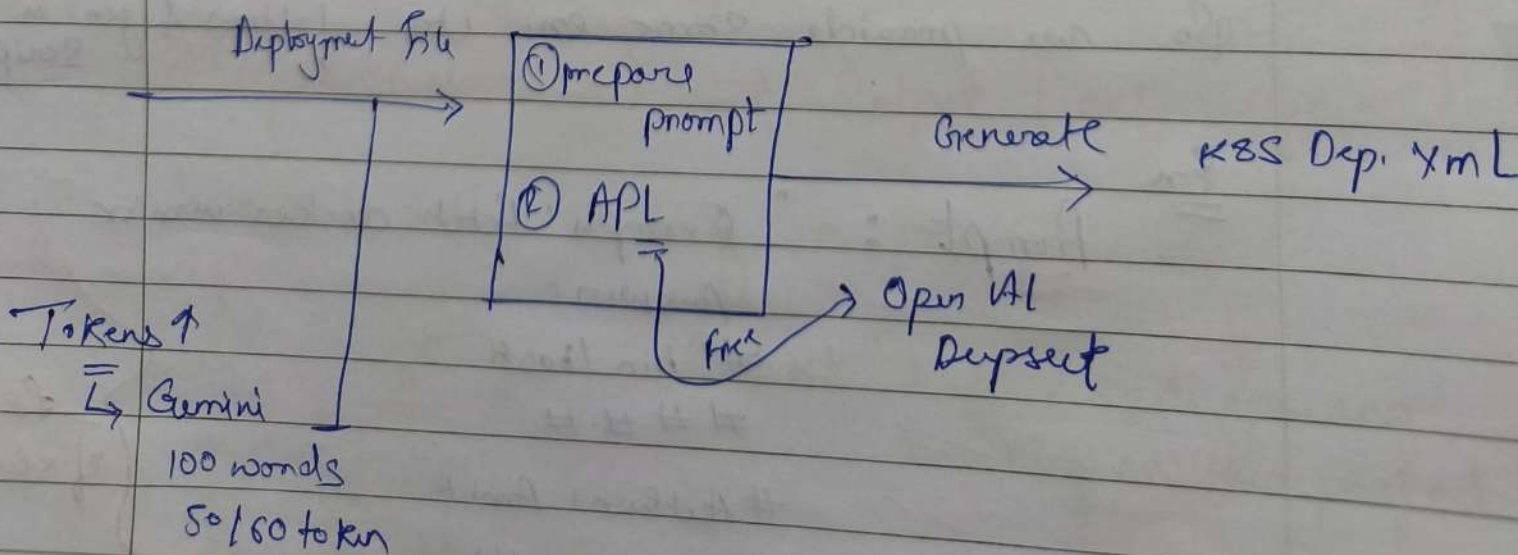 Deployment File
① prepare
prompt
② API
Generate
K8S Dep. YmL
Free
Open AI
Deepseek
Tokens ↑
↳ Gemini
100 words
50/60 token
Prompt :